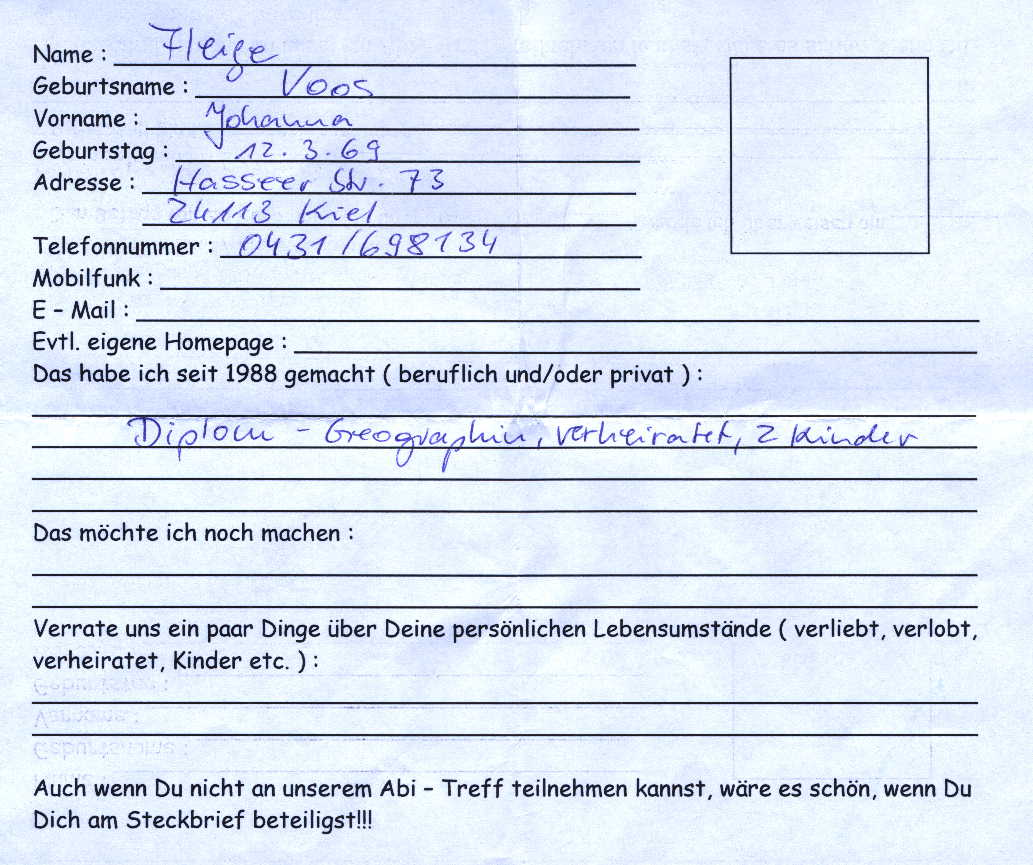 Name : Fleige
Geburtsname : Voos
Vorname : Johanna
Geburtstag : 12.3.69
Adresse : Hasseer Str. 73
24113 Kiel
Telefonnummer : 0431/698134
Mobilfunk :
E – Mail :
Evtl. eigene Homepage :
Das habe ich seit 1988 gemacht ( beruflich und/oder privat ) :
Diplom - Geographin, verheiratet, 2 Kinder
Das möchte ich noch machen :
Verrate uns ein paar Dinge über Deine persönlichen Lebensumstände ( verliebt, verlobt,
verheiratet, Kinder etc. ) :
Auch wenn Du nicht an unserem Abi – Treff teilnehmen kannst, wäre es schön, wenn Du
Dich am Steckbrief beteiligst!!!